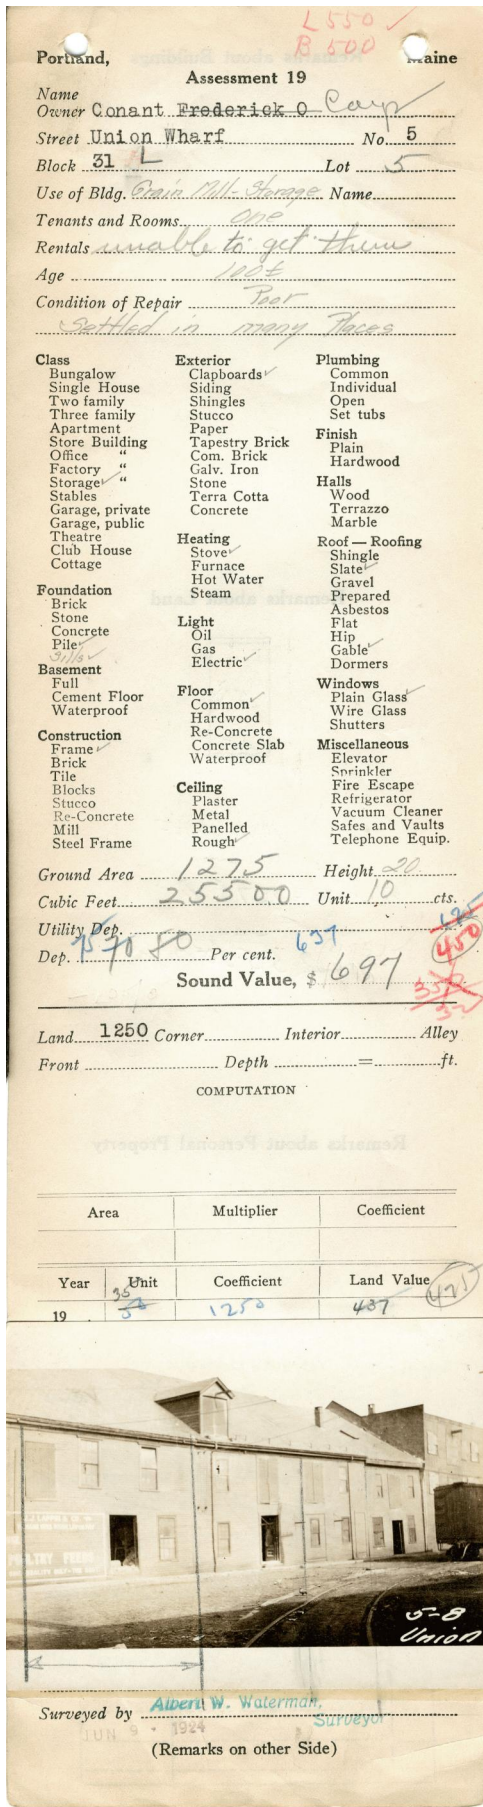 L 550 ✓
B 500
Portland, Maine
Assessment 19
Name
Owner Conant Frederick O Corp
Street Union Wharf No. 5
Block 31 L Lot 5
Use of Bldg. Grain Mill-Storage Name
Tenants and Rooms one
Rentals unable to get them
Age 100±
Condition of Repair Poor
Settled in many Places
Class
Bungalow
Single House
Two family
Three family
Apartment
Store Building
Office "
Factory "
Storage ✓ "
Stables
Garage, private
Garage, public
Theatre
Club House
Cottage
Foundation
Brick
Stone
Concrete
Pile ✓
Sills ✓
Basement
Full
Cement Floor
Waterproof
Construction
Frame ✓
Brick
Tile
Blocks
Stucco
Re-Concrete
Mill
Steel Frame
Exterior
Clapboards ✓
Siding
Shingles
Stucco
Paper
Tapestry Brick
Com. Brick
Galv. Iron
Stone
Terra Cotta
Concrete
Heating
Stove ✓
Furnace
Hot Water
Steam
Light
Oil
Gas
Electric ✓
Floor
Common ✓
Hardwood
Re-Concrete
Concrete Slab
Waterproof
Ceiling
Plaster
Metal
Panelled
Rough ✓
Plumbing
Common
Individual
Open
Set tubs
Finish
Plain
Hardwood
Halls
Wood
Terrazzo
Marble
Roof — Roofing
Shingle
Slate ✓
Gravel
Prepared
Asbestos
Flat
Hip
Gable ✓
Dormers
Windows
Plain Glass ✓
Wire Glass
Shutters
Miscellaneous
Elevator
Sprinkler
Fire Escape
Refrigerator
Vacuum Cleaner
Safes and Vaults
Telephone Equip.
Ground Area 1275 Height 20
Cubic Feet 25500 Unit 10 cts.
Utility Dep.
450
Dep. 75 70 80 Per cent. 637
Sound Value, $ 697
Land 1250 Corner Interior Alley
Front Depth = ft.
COMPUTATION
Area Multiplier Coefficient
Year Unit Coefficient Land Value
35 425
19 50 1250 437
POULTRY FEEDS
5-8
Union
Surveyed by Albert W. Waterman,
Surveyor
JUN 9 - 1924
(Remarks on other Side)